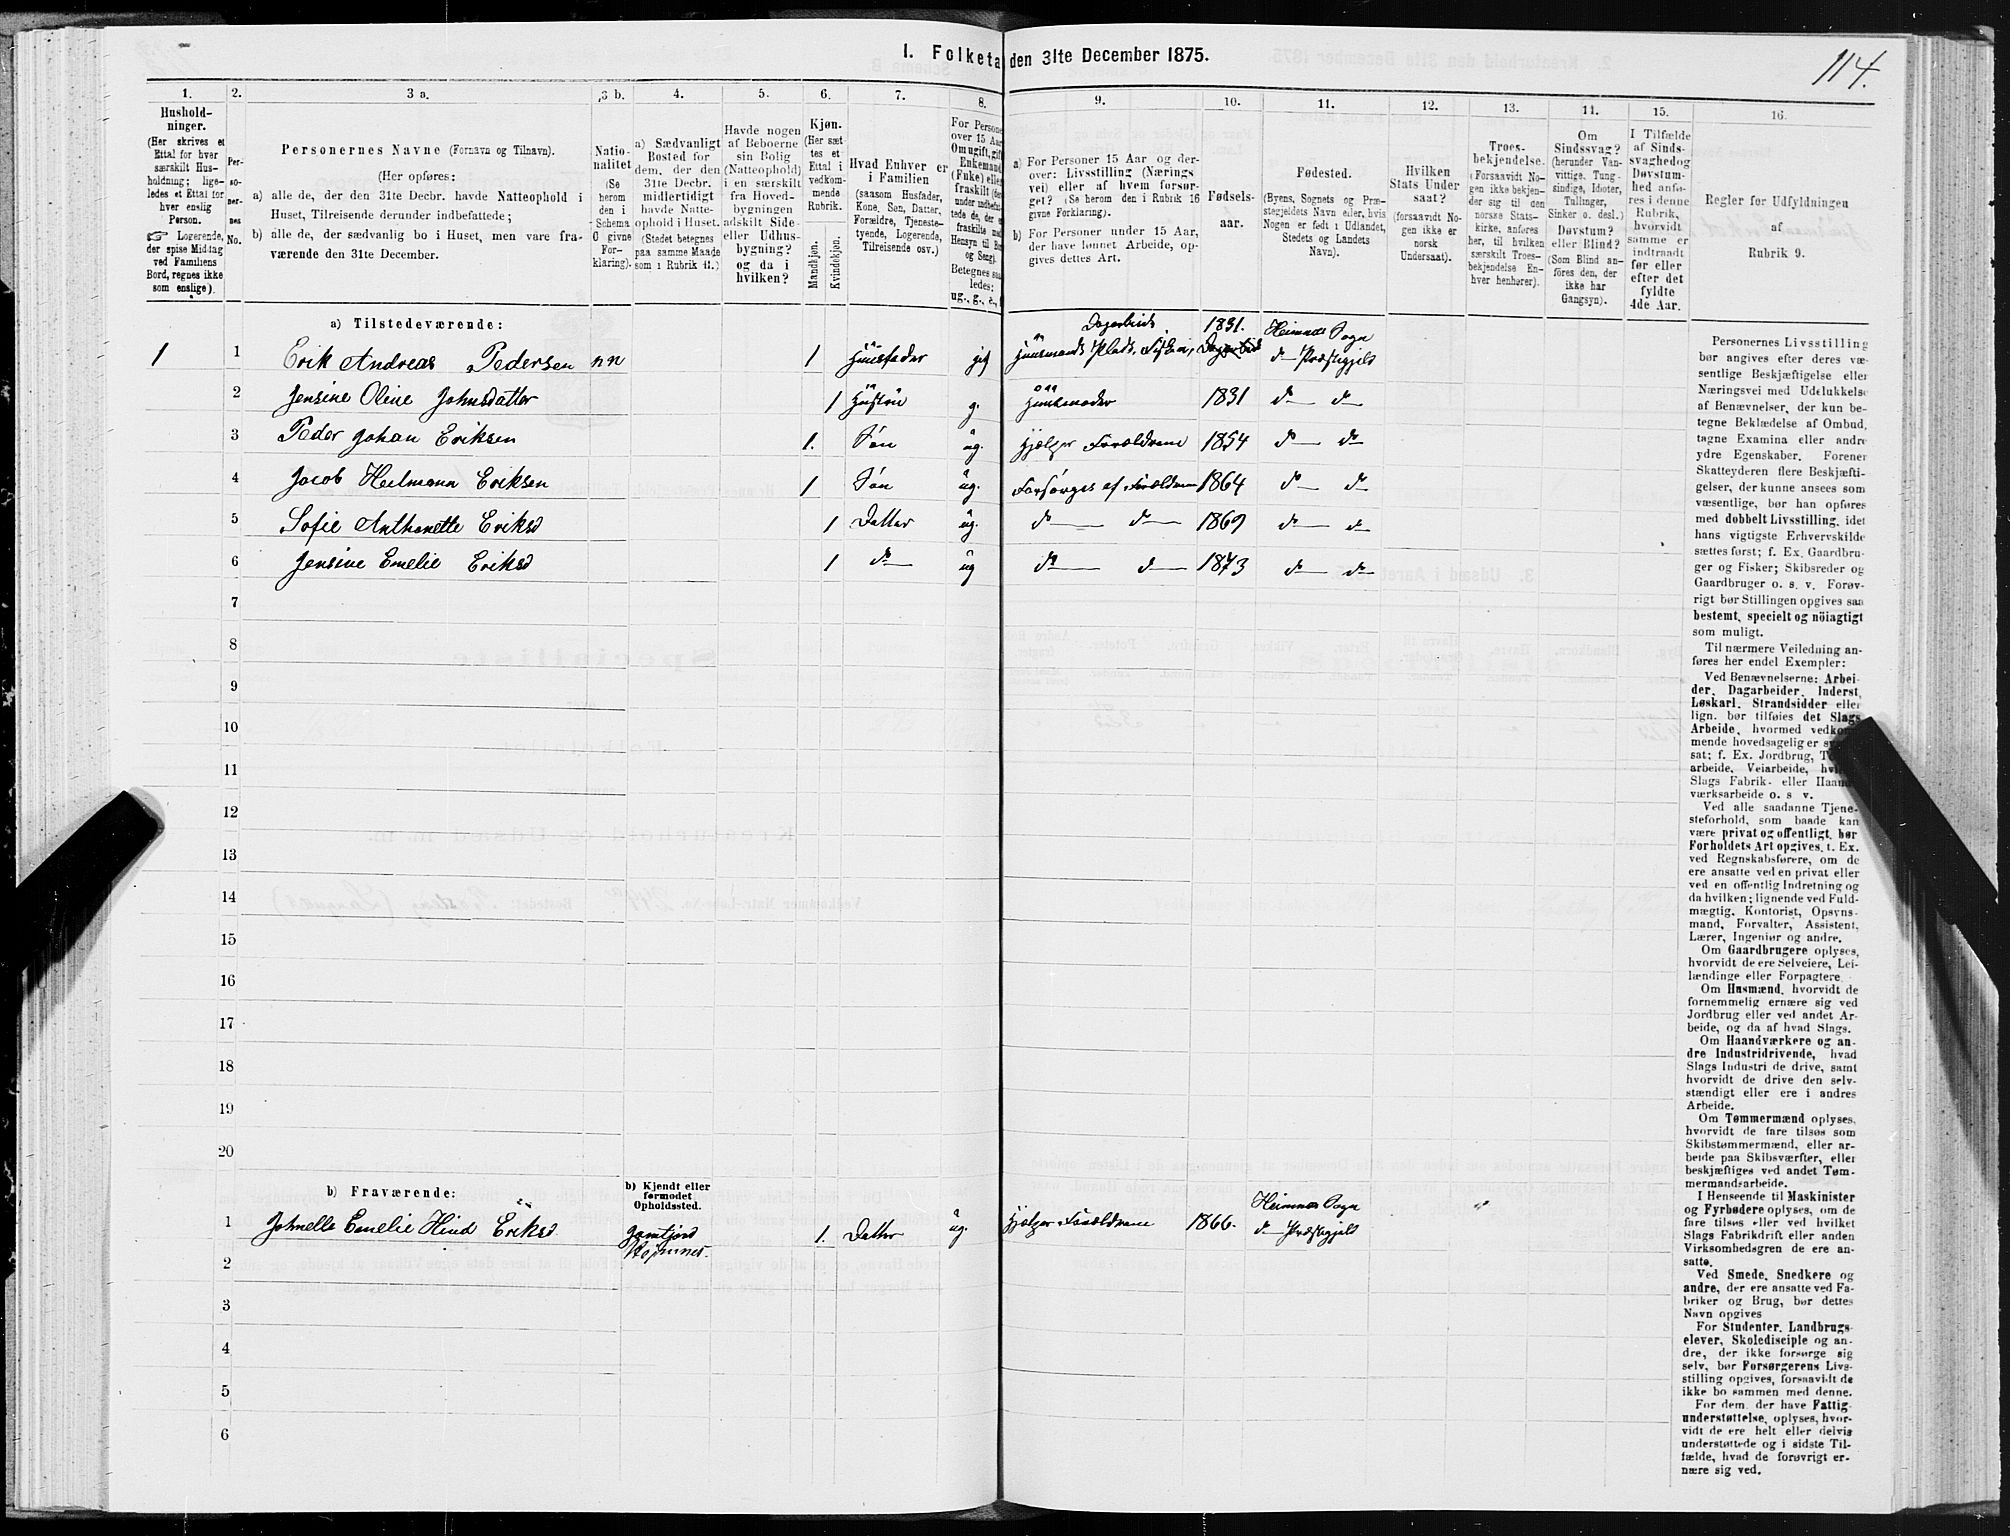 I. Folketa den 31te December 1875.
114.
1. 2. 3 a. 3 b. 4. 5. 6. 7. 8. 9. 10. 11. 12. 13. 14. 15. 16.
Hushold-
ninger.
(Her skrives et
Ettal for hver
særskilt Hus-
holdning; lige-
ledes et Ettal for
hver enslig
Person.
☞ Logerende,
der spise Middag
ved Familiens
Bord, regnes ikke
som enslige).
Per-
so-
ner-
nes
No.
Personernes Navne (Fornavn og Tilnavn).
(Her opføres:
a) alle de, der den 31te Decbr. havde Natteophold i
Huset, Tilreisende derunder indbefattede;
b) alle de, der sædvanlig bo i Huset, men vare fra-
værende den 31te December.
Natio-
nalitet
(Se
herom
den i
Schema
O givne
For-
klaring).
a) Sædvanligt
Bosted for
dem, der den
31te Decbr.
midlertidigt
havde Natte-
ophold i Huset.
(Stedet betegnes
paa samme Maade
som i Rubrik 11.)
Havde nogen
af Beboerne
sin Bolig
(Natteophold)
i en særskilt
fra Hoved-
bygningen
adskilt Side-
eller Udhus-
bygning?
og da i
hvilken?
Kjøn.
(Her sæt-
tes et
Ettal i
vedkom-
mende
Rubrik.
Mandkjøn.
Kvindekjøn.
Hvad Enhver er
i Familien
(saasom Husfader,
Kone, Søn, Datter,
Forældre, Tjeneste-
tyende, Logerende,
Tilreisende osv.)
For Persone
over 15 Aar
Om ugift, gift
Enkemand
(Fuke) eller
fraskilt (der
under indbefat-
tede de, der e
fraskilte med
Hensyn til Bo
og Seng).
Betegnes saa
ledes:
ug., g., e.,
a) For Personer 15 Aar og der-
over: Livsstilling (Nærings
vei) eller af hvem forsør-
get? (Se herom den i Rubrik 16
givne Forklaring).
b) For Personer under 15 Aar,
der have lønnet Arbeide, op-
gives dettes Art.
Fødsels-
aar.
Fødested.
(Byens, Sognets og Præ-
stegjeldets Navn eller, hvis
Nogen er født i Udlandet,
Stedets og Landets
Navn).
Hvilken
Stats Under
saat?
(forsaavidt No-
gen ikke er
norsk
Undersaat).
Troes-
bekjendelse.
(Forsaavidt No-
gen ikke bekjen-
der sig til den
norske Stats-
kirke, anføres
her, til hvilken
særskilt Troes-
bekjendelse En-
hver henhører).
Om
Sindssvag?
(herunder Van-
vittige, Tung-
sindige, Idioter,
Tullinger,
Sinker o. desl.)
Døvstum?
eller Blind?
(Som Blind an-
føres den, der
ikke har
Gangsyn).
I Tilfælde
af Sinds-
svaghed og
Døvstum-
hed anfø-
res i denne
Rubrik,
hvorvidt
samme er
indtraadt
før eller
efter det
fyldte
4de Aar.
Regler for Udfyldningen
af
Rubrik 9.
a) Tilstedeværende:
1 1 Erik Andreas Pedersen nn 1 Huusfader gift Huusmand Plads, Fisker, Dagarbeid 1831. Heimnæs Sogn
do Præstegjeld
2 Jensine Oline Johnsdatter 1 Hustru g. Huusmoder 1831 do do
3 Peder Johan Eriksen 1. Søn ug. Hjelper Forældrene 1854 do do
4 Jacob Heilmann Eriksen 1 Søn ug. Forsørges af Forældrene 1864 do do
5 Sofie Anthonette Eriksd 1 Datter ug. do do 1869 do do
6 Jensine Emelie Eriksd 1 do ug do do 1873 do do
7
8
9
10
11
12
13
14
15
16
17
18
19
20
b) Fraværende:
b) Kjendt eller
formodet
Opholdssted.
1 Johnella Emelie Hind Eriksd 1. Datter ug. Hjelper Forældrene 1866. Heimnæs Sogn
do Præstegjeld
2
3
4
5
6
Personernes Livsstilling
bør angives efter deres væ-
sentlige Beskjæftigelse eller
Næringsvei med Udelukkelse
af Benævnelser, der kun be-
tegne Beklædelse af Ombud,
tagne Examina eller andre
ydre Egenskaber. Forener
Skatteyderen flere Beskjæfti-
gelser, der kunne ansees som
væsentlige, bør han opføres
med dobbelt Livsstilling, idet
hans vigtigste Erhvervskilde
sættes først; f. Ex. Gaardbru-
ger og Fisker; Skibsreder og
Gaardbruger o. s. v. Forøv-
rigt bør Stillingen opgives saa
bestemt, specielt og nöiagtigt
som muligt.
Til nærmere Veiledning an-
føres her endel Exempler:
Ved Benævnelserne: Arbei-
der, Dagarbeider, Inderst,
Løskarl, Strandsidder eller
lign. bør tilføies det Slags
Arbeide, hvormed vedkom-
mende hovedsagelig er sys
sat; f. Ex. Jordbrug, T
arbeide, Veiarbeide, hvi
Slags Fabrik- eller Haan
værksarbeide o. s. v.
Ved alle saadanne Tjene-
steforhold, som baade kan
være privat og offentligt, bør
Forholdets Art opgives, t. Ex.
ved Regnskabsførere, om de
ere ansatte ved en privat eller
ved en offentlig Indretning og
da hvilken; lignende ved Fuld-
mægtig, Kontorist, Opsyns-
mand, Forvalter, Assistent,
Lærer, Ingeniør og andre.
Om Gaardbrugere oplyses,
hvorvidt de ere Selveiere, Lei-
lændinge eller Forpagtere.
Om Husmænd, hvorvidt de
fornemmelig ernære sig ved
Jordbrug eller ved andet Ar-
beide, og da af hvad Slags.
Om Haandværkere og an-
dre Industridrivende, hvad
Slags Industri de drive, samt
hvorvidt de drive den selv-
stændigt eller ere i andres
Arbeide.
Om Tømmermænd oplyses,
hvorvidt de fare tilsøs som
Skibstømmermænd, eller ar-
beide paa Skibsværfter, eller
beskjæftiges ved andet Tøm-
mermandsarbeide.
I Henseende til Maskinister
og Fyrbødere oplyses, om de
fare tilsøs eller ved hvilket
Slags Fabrikdrift eller anden
Virksomhedsgren de ere an-
satte.
Ved Smede, Snedkere og
andre, der ere ansatte ved Fa-
briker og Brug, bør dettes
Navn opgives
For Studenter, Landbrugs-
elever, Skoledisciple og an-
dre, der ikke forsørge sig
selv, bør Forsørgerens Livs-
stilling opgives, forsaavidt de
ikke bo sammen med denne.
For dem, der have Fattig-
understøttelse, oplyses, hvor-
vidt de ere helt eller delvis
understøttede og i sidste Til-
fælde, hvad de forøvrigt er-
nære sig ved.